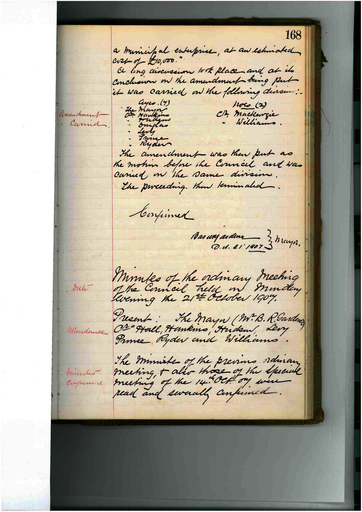 168
a municipal enterprise, at an estimated
cost of £10,000."
A long discussion took place and at its
conclusion on the amendment being put
it was carried on the following division:-
Ayes. (7) Noes (2)
Amendment
Carried
The Mayor Cr. Mackenzie
Cr. Hawkins " Williams.
" Hudson
" Douglas
" Levy
" Prince
" Ryder
The amendment was then put as
the motion before the Council and was
carried on the same division.
The proceeding then terminated.
Confirmed
Mayor.
Oct. 21st 1907
Date
Minutes of the ordinary Meeting
of the Council held on Monday
evening the 21st October 1907.
Attendance
Present: The Mayor (Mr. B. R. Gardener)
Crs Hall, Hawkins, Hudson, Levy
Prince Ryder and Williams.
Minutes
Confirmed
The Minutes of the previous ordinary
meeting, & also those of the special
meeting of the 14th Oct. 07 were
read and severally confirmed.